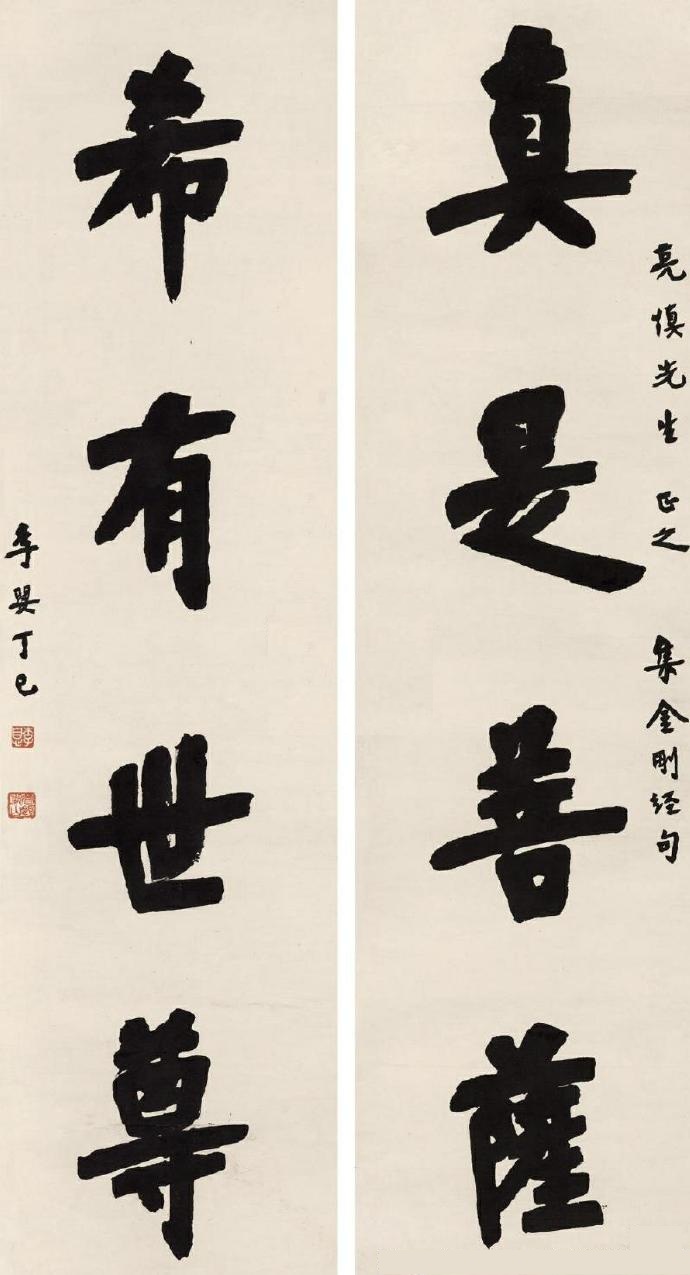 真是善薩
亮慎先生 正之 集金剛经句
希有世尊
丁巳